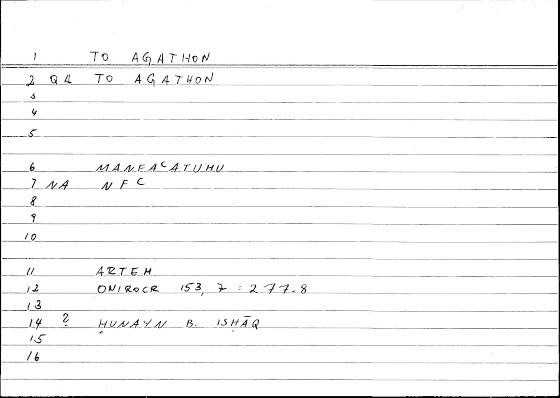 1 TO AGATHON
2 QL TO AGATHON
3
4
5
6 MANFAᶜATUHU
7 NA NFᶜ
8
9
10
11 ARTEM
12 ONIROCR 153, 7 = 277.8
13
14 ? ḤUNAYN B. ISḤĀQ
15
16